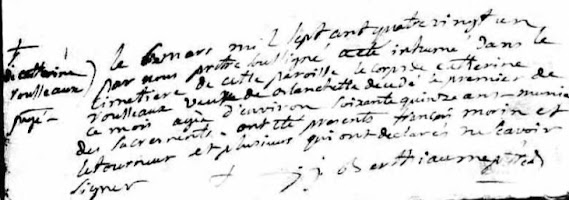 +
de catherine
rousseaux
le mars mil sept cent quatre vingt un
par nous prêtre soussigné a été inhumé dans le
cimetiere de cette paroisse le corps de catterine
rousseaux veuve de decedé le premier de
ce mois agée d'environ soixante quinze ans munie
des sacrements ont été presents françois morin et
letourneur et plusieurs qui ont declarés ne sçavoir
signer + j j Berthiaume ptre